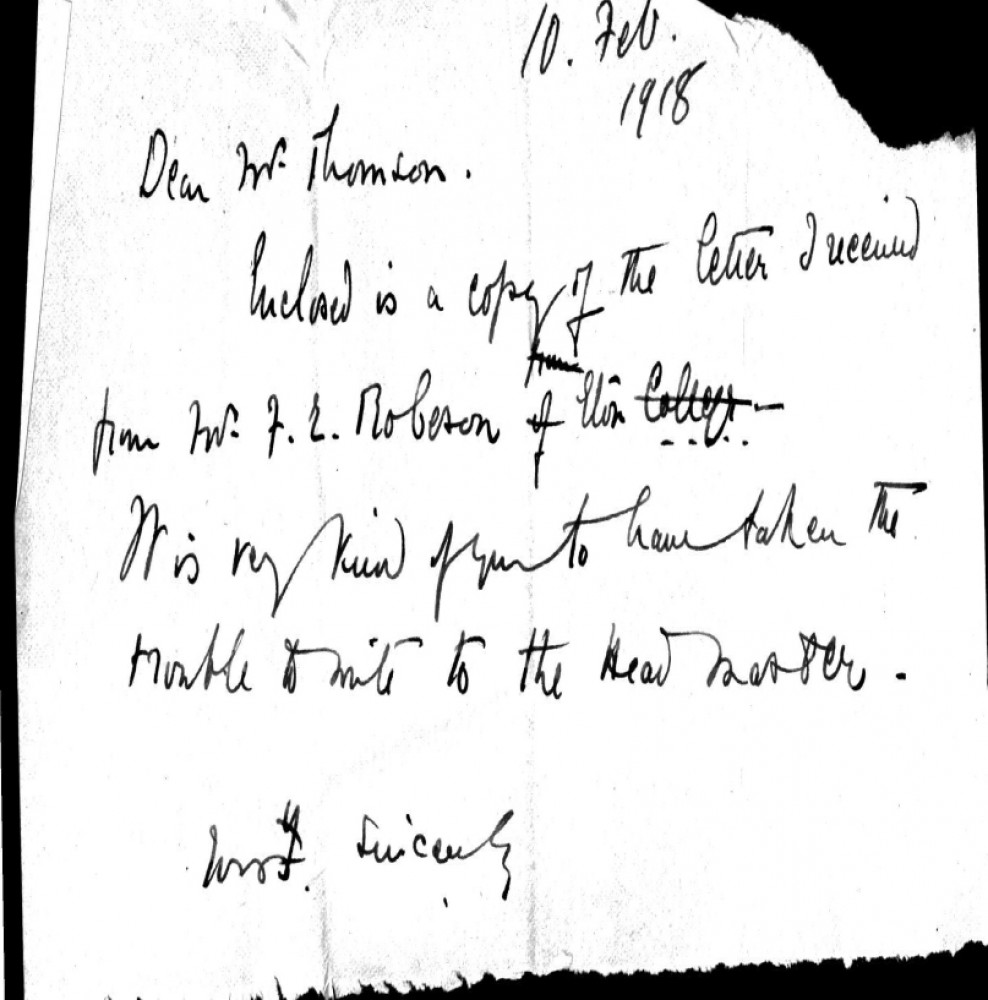 10. Feb.
1918
Dear Mr. Thomson.
Enclosed is a copy of the letter I received
from
from Mr. F. E. Robeson of Eton College —
It is very kind of you to have taken the
trouble to write to the Head Master.
Sincerely